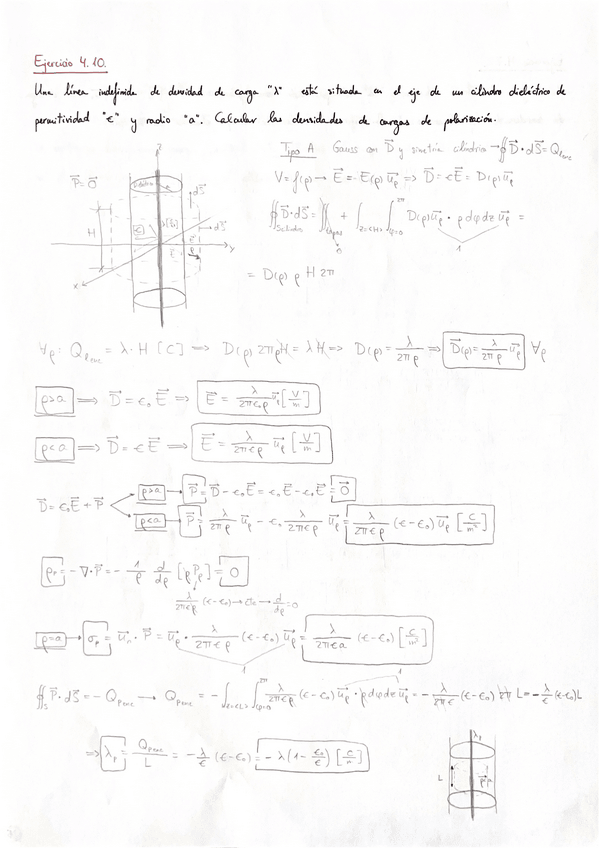 Ejercicio 4.10.
Una línea indefinida de densidad de carga "λ" está situada en el eje de un cilindro dieléctrico de
permitividad "ε" y radio "a". Calcular las densidades de cargas de polarización.
Tipo A Gauss con D⃗ y simetría cilíndrica → ∯ D⃗ · dS⃗ = Q_lenc
V = f(ρ) → E⃗ = E(ρ) u⃗ρ ⇒ D⃗ = εE⃗ = D(ρ) u⃗ρ
P⃗ = 0⃗
z
dS⃗
H
dS⃗
y
x
∯ D⃗ · dS⃗ = ∬ + ∫ ∫ D(ρ) u⃗ρ · ρ dφ dz u⃗ρ =
0
1
= D(ρ) ρ H 2π
∀ρ: Q_lenc = λ · H [C] ⇒ D(ρ) 2πρH = λH ⇒ D(ρ) = λ/2πρ ⇒ D⃗(ρ) = λ/2πρ u⃗ρ ∀ρ
ρ>a ⇒ D⃗ = ε₀ E⃗ ⇒ E⃗ = λ/2πε₀ρ u⃗ρ [V/m]
ρ<a ⇒ D⃗ = ε E⃗ ⇒ E⃗ = λ/2περ u⃗ρ [V/m]
D⃗ = ε₀E⃗ + P⃗
ρ>a → P⃗ = D⃗ - ε₀E⃗ = ε₀E⃗ - ε₀E⃗ = 0⃗
ρ<a → P⃗ = λ/2πρ u⃗ρ - ε₀ λ/2περ u⃗ρ = λ/2περ (ε-ε₀) u⃗ρ [C/m²]
ρp = -∇·P⃗ = - 1/ρ d/dρ [ρPρ] = 0
λ/2περ (ε-ε₀) → cte → d/dρ = 0
ρ=a → σp = u⃗n · P⃗ = u⃗ρ · λ/2περ (ε-ε₀) u⃗ρ = λ/2πεa (ε-ε₀) [C/m²]
1
1
∯s P⃗ · dS⃗ = - Qpenc → Qpenc = - ∫z=<L> ∫φ=0^2π λ/2περ (ε-ε₀) u⃗ρ · ρ dφ dz u⃗ρ = - λ/2πε (ε-ε₀) 2π L = - λ/ε (ε-ε₀)L
⇒ λp = Qpenc/L = - λ/ε (ε-ε₀) = - λ(1 - ε₀/ε) [C/m]
λp
L
P⃗